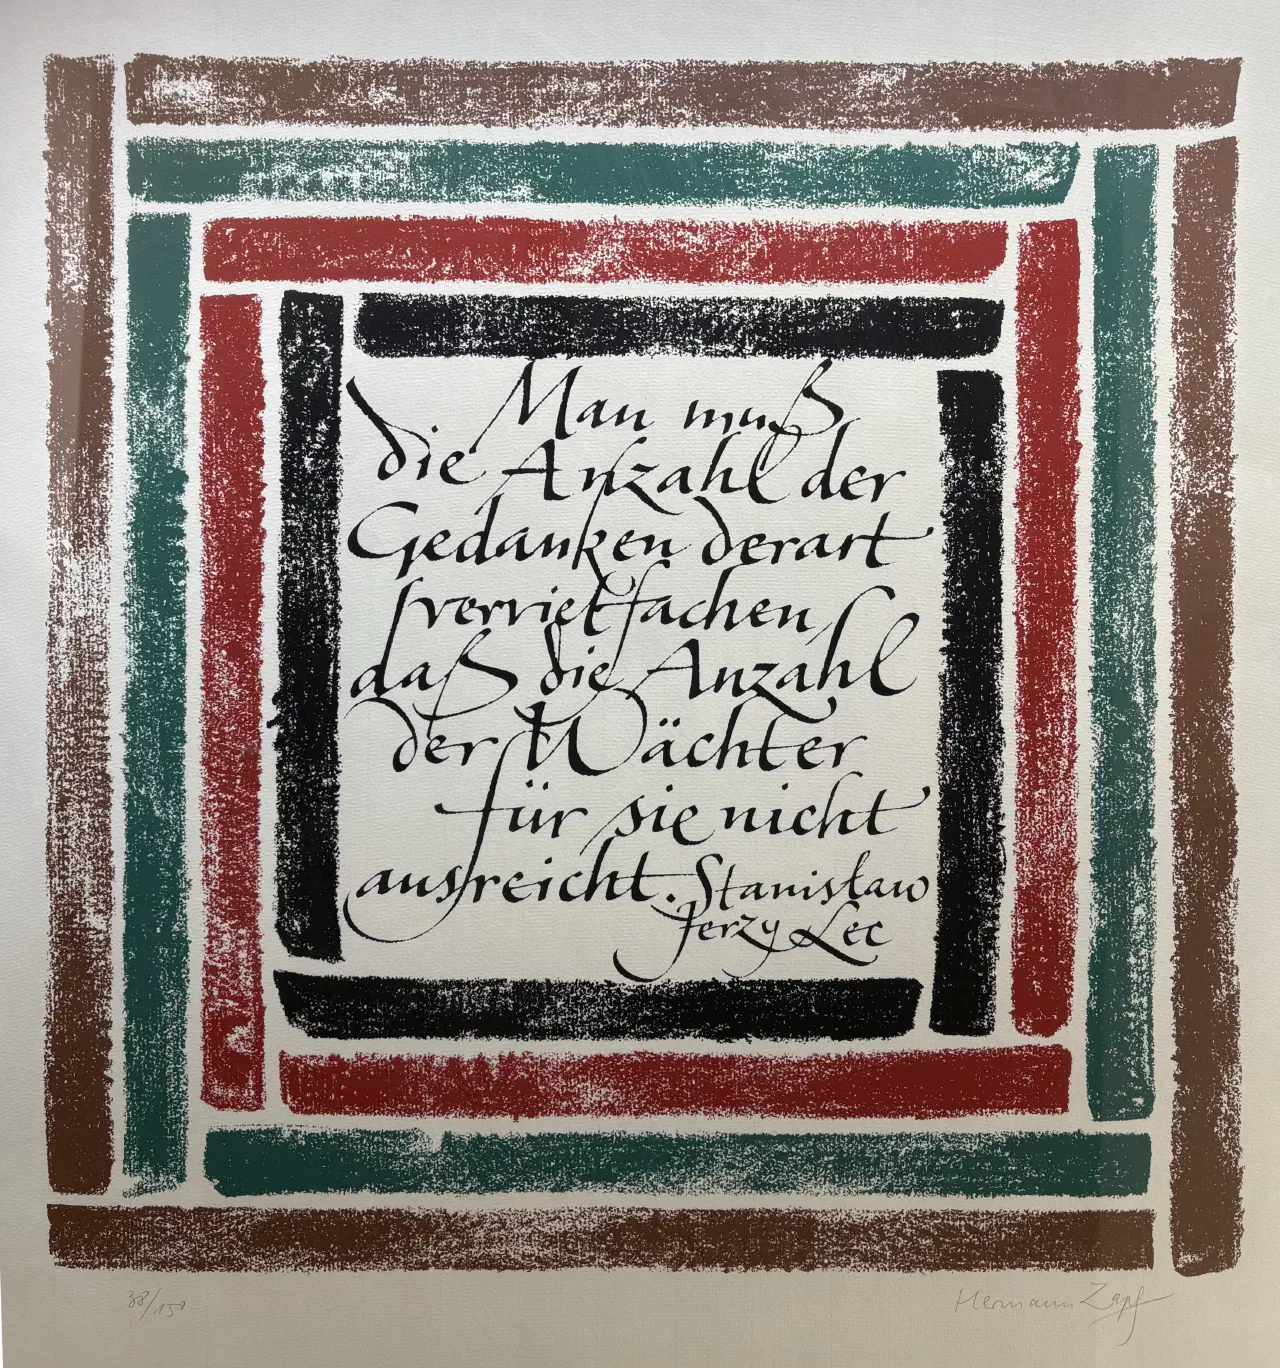 Man muß
die Anzahl der
Gedanken derart
vervielfachen,
daß die Anzahl
der Wächter
für sie nicht
ausreicht. Stanisław
Jerzy Lec
38/150 Hermann Zapf